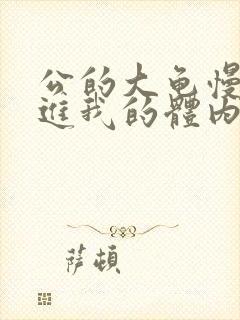 公的大龟慢
進我的體内
萨頓